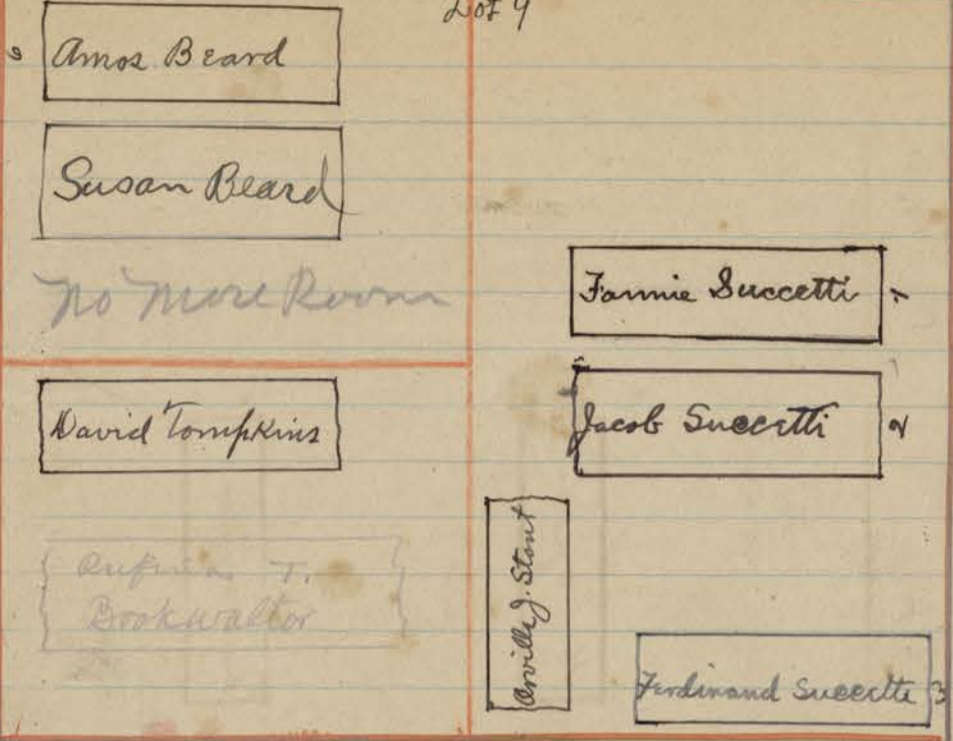 Lot 9
Amos Beard
Susan Beard
No More Room
David Tompkins
T.
Bookwaltor
Fannie Succetti 1
Jacob Succetti 2
Orville J. Stout
Ferdinand Succetti 3